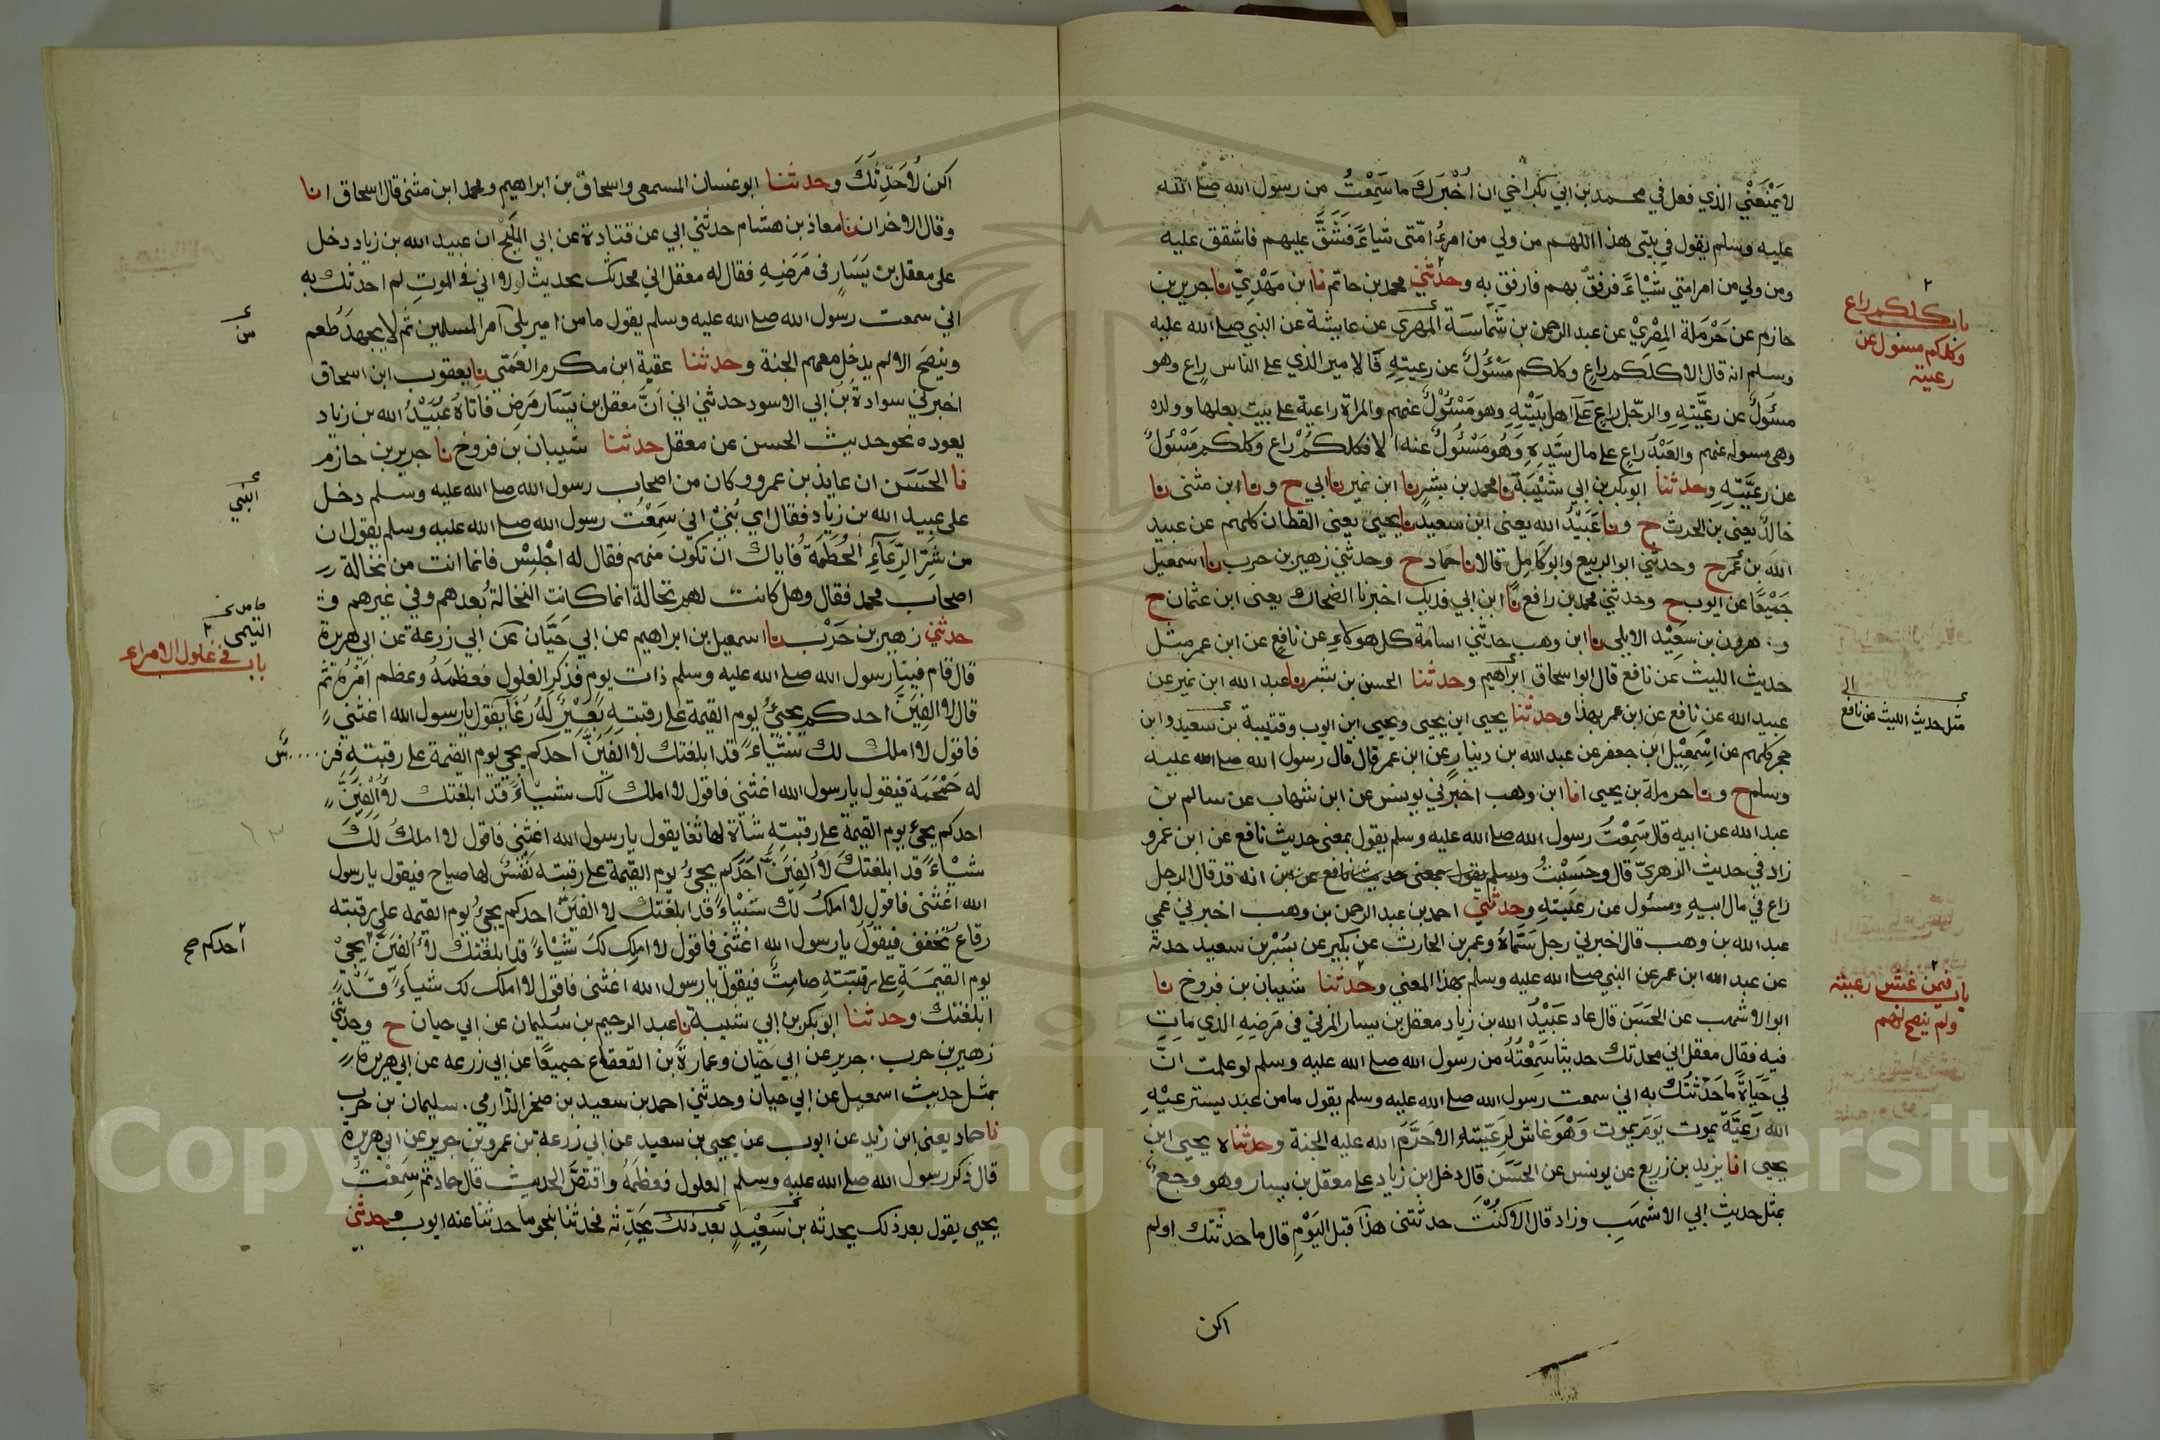 لا يَمْنَعَنْي الذي فعل في محمد بن ابي بكر اخي ان اُخْبِرَكَ ما سَمِعْتُ من رسول الله صلى الله
عليه وسلم يقول في بيتى هذا اللهم من ولي من امر امّتى شياءً فَشَقَّ عليهم فاشقق عليه
ومن ولي من امر امتي شَيْاءً فرفق بهم فارفق به وحدثني محمد بن حاتم نا ابن مَهْديّ نا جرير بن
حازم عن حَرْمَلة المِصْريْ عن عبد الرحمن بن شَمَاسَة المهرَي عن عايشة عن النبي صلى الله عليه
وسلم انه قال الا كلكم راعٍ وكلكم مَسْؤُلٌ عن رعيتِهِ فالامير الذي على الناس راع وهو
مسئَولٌ عن رعَيَّتِهِ والرجل راع عَلَى اهل بَيْتِهِ وهو مَسْئُوْلٌ عنهم والمراة راعية على بيت بعلها وولده
وهى مسوله عنهم والعَبْدُ راعٍ على مال سَيّدِهِ وَهُوَ مَسْئُولٌ عنه الا فكلكُمْ راع وكلكم مَسْئولٌ
عن رعَيَّتِهِ وحدثنا ابو بكر بن ابي شَيْبَة نا محمد بن بشرٍ نا ابن نمير نا ابي ح ونا ابن مثنى نا
خالدٌ يعنى بن الحرث ح ونا عُبَيْدُ الله يعنى ابن سعيد نا يحيى يعنى القطان كلهم عن عبيد
الله بن عُمرَ ح وحدثني ابو الربيع وابو كامِل قالا نا حماد ح وحدثني زهير بن حرب نا اسمعيل
جَمْيعًا عن ايوب ح وحدثني محمد بن رافع نا ابن ابي فديك اخبرنا الضحاك يعنى ابن عثمان ح
و. هرون بن سعِيْد الايلى نا ابن وهب حدثني اسامة كل هوكاءِ عن نافعٍ عن ابن عمر مثل
حديث الليث عن نافع قال ابو اسحاق ابراهيم وحدثنا الحسن بن بشر نا عبد الله ابن نمير عن
عبيد الله عن نافع عن ابن عمر بهذا وحدثنا يحيى ابن يحيى ويحيى ابن ايوب وقتيبة بن سعيد وابن
حجر كلهم عن اسْمِعْيْل ابن جعفر عن عبد الله بن دينارٍ عن ابن عمر قال قال رسول الله صلى الله عليه
وسلم ح ونا حرملة بن يحيى انا ابن وهب اخبرني يونس عن ابن شهاب عن سالم بن
عبد الله عن ابيه قال سَمِعْتُ رسول الله صلى الله عليه وسلم يقول بمعنى حديث نافع عن ابن عمر و
زاد في حديث الزهريّ قال وحَسِبْتُ وسلم يقول بمعنى حديث نافع عن بن انه قد قال الرجل
راع في مال ابيهِ ومسئول عن رعيتهِ وحدثنيْ احمد بن عبد الرحمن بن وهب اخبرني عمي
عبد الله بن وهب قال اخبرني رجل سَمَّاهُ وعمر بن الحارث عن بكير عن بسْر بن سعيد حدثه
عن عبد الله ابن عمر عن النبي صلى الله عليه وسلم بهذا المعني وحدثنا شيبان بن فروخ نا
ابو الاشهب عن الحَسَن قال عاد عبَيْدُ الله بن زياد معقل بن يسار المزني في مَرَضِهِ الذي ماتِ
فيه فقال معقل اني محدثك حديثا سَمِعْتُهُ من رسول الله صلى الله عليه وسلم لو علمت انّ
لي حَياةً ما حَدّثتُك به اني سمعت رسول الله صلى الله عليه وسلم يقول ما من عبد يسترعيْهِ
الله رَعيَّةً يموت يَوْمَ يموت وَهْوَ غاش لرعَيّتهِ الا حَرّم الله عليه الجنة وحدثناه يحيى ابن
يحيى انا يزيد بن زريع عن يونس عن الحَسَن قال دخل ابن زياد على معقل بن يسار وهو وجع
بمثل حديث ابي الاشهَبِ وزاد قال الا كنْتَ حدثتنى هذا قبل اليَوْمِ قال ما حدثتك اولم
اكن
باب كلكم راع
وكلكم مسئول عن
رعيته
مثل حديث الليث عن نافع
باب فيمن غش رعيته
ولم ينصح لهم
اكن لأُحَدِّثَكَ وحدثنا ابو غسان المسمعى واسحاق بن ابراهيم ومحمد ابن مثنى قال اسحاق انا
وقال الاخران نا معاذ بن هشام حدثني ابي عن قتادة عن ابي المَلِيْحِ ان عبيد الله بن زياد دخل
على معقل بن يَسَارٍ في مَرَضِهِ فقال له معقل اني محدثك بحديث لولا اني في الموتِ لم احدثك به
اني سمعت رسول الله صلى الله عليه وسلم يقول ما من امير يلى امر المسلمين ثم لا يجهدَ لهم
وينصَحَ الا لم يدخل معهم الجنة وحدثنا عقبة ابن مكرم العَمّي نا يعقوب ابن اسحاق
اخبرني سوادةُ بن ابي الاسود حدثني ابي اَنَّ معقل بن يَسَار مَرضٍ فاتاهُ عُبَيْدُ الله بن زياد
يعوده نحو حديث الحسن عن معقل حدثنا شيبان بن فروخ نا جرير بن حازم
نا الحَسَن ان عايذ بن عمرو وكان من اصحاب رسول الله صلى الله عليه وسلم دخل
على عبيد الله بن زياد فقال اي بُنَيّ اني سَمِعْتُ رسول الله صلى الله عليه وسلم يقول ان
من شَرّ الرّعَاءِ الحُطَمَة فاياك ان تكون منهم فقال له اجْلِسْ فانما انت من نخالة
اصحاب محمد فقال وهل كانت لهم نخالة انما كانت النخالةُ بُعدهم وفي غيرهم و
حدثني زهير بن حَرْب نا اسمعيل بن ابراهيم عن ابي حَيَّان عن ابي زرعة عن ابي هريرة
قال قام فينا رسول الله صلى الله عليه وسلم ذات يوم فذكر الغلول فعظمَهُ وعظم امْرَهُ ثم
قال لا اُلفِيَنَّ احدكم يجيئُ يوم القيمة على رقبتهِ بَعْيْرٌ لهُ رُغاً يقول يا رسول الله اغثني
فاقول لا املك لك شيْاءً قد ابلغتك لا اُلفَيَنَّ احدكم يجي يوم القيمة على رقبتهِ فرس
له حَمْحَمَة فيقول يا رسول الله اغثني فاقول لا املك لك شيْاءً قد ابلغتك لا اُلْفِيَنَّ
احدكم يجئُ يوم القيمة على رقبتهِ شاة لها ثغا يقول يا رسول الله اغثني فاقول لا املكُ لَكَ
شيْاءً قد ابلغتكَ لا اُلفِيَنَّ احَدَكم يجئُ يوم القيمة على رقبته نَفْسٌ لها صياح فيقول يا رسول
الله اغثنى فاقول لا املكُ لكَ شَيْاءً قد ابلغتك لا الفيَنَّ احدكم يجئُ يوم القيمة على رقبته
رقاعٌ تخفق فيقول يا رسول الله اغثني فاقول لا املِك لكَ شَيْاءً قد ابلغتك لا اُلفِيَنَّ يجئُ
يوم القيمَةِ على رقبَتهِ صامِتٌ فيقول يا رسول الله اغثني فاقول لا املك لك شياءً قَدْ
ابلغتك وحدثنا ابو بكر بن ابي شيبة نا عبد الرحيم بن سُليمان عن ابي حيان ح وحدثني
زهير بن حرب. جرير عن ابي حَيّان وعمارةُ بن القعقاع جميعًا عن ابي زرعه عن ابي هريرة
بمثل حديث اسمعيل عن ابي حيان وحدثني احمد بن سعيد بن صخر الدارمي. سليمان بن حرب
نا حماد يعنى ابن زيد عن ايوب عن يحيى بن سعيد عن ابي زرعة بن عمرو بن جرير عن ابي هريرة
قال ذكر رسول الله صلى الله عليه وسلم الغلول فعظمَهُ واقتصَّ الحديث قال حماد ثم سَمِعْتُ
يحيى يقول بعد ذلك يحدثه بن سَعِيْدٍ بعد ذلك يُحَدِّثه فحدثنا بنحو ما حدثنا عنه ايوب وحدثني
من
النبي
التيمى
باب في غلول الامراء
احدكم صح
Copyright © King Saud University